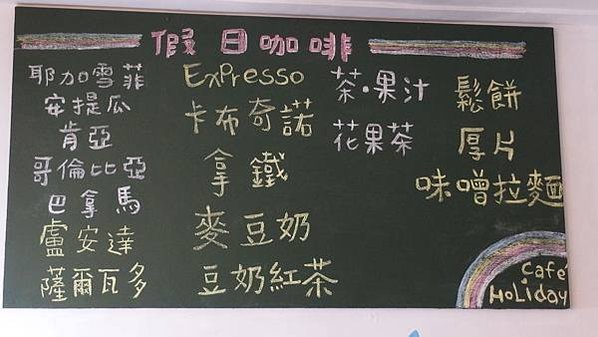 假日咖啡
耶加雪菲
安提瓜
肯亞
哥倫比亞
巴拿馬
盧安達
薩爾瓦多
ExPresso
卡布奇諾
拿鐵
麥豆奶
豆奶紅茶
茶·果汁
花果茶
鬆餅
厚片
味噌拉麵
Cafe
HoLiday